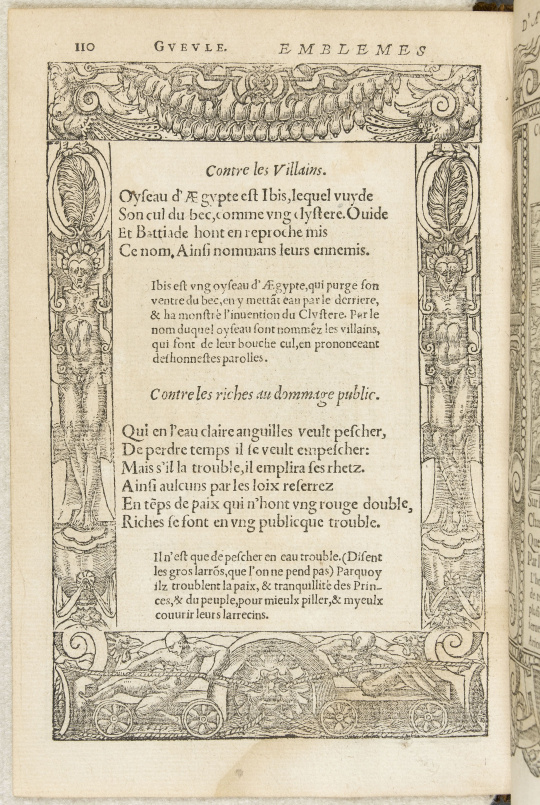 110 GVEVLE. EMBLEMES
Contre les Villains.
Oyſeau d'Ægypte eſt Ibis, lequel vuyde
Son cul du bec, comme vng clyſtere. Ouide
Et Battiade hont en reproche mis
Ce nom, Ainſi nommans leurs ennemis.
Ibis eſt vng oyſeau d'Ægypte, qui purge ſon
ventre du bec, en y mettãt eau par le derriere,
& ha monſtré l'inuention du Clyſtere. Par le
nom duquel oyſeau ſont nommêz les villains,
qui ſont de leur bouche cul, en prononceant
deſhonneſtes parolles.
Contre les riches au dommage public.
Qui en l'eau claire anguilles veult peſcher,
De perdre temps il ſe veult empeſcher:
Mais s'il la trouble, il emplira ſes rhetz.
Ainſi aulcuns par les loix reſerrez
En tẽps de paix qui n'hont vng rouge double,
Riches ſe font en vng publicque trouble.
Il n'eſt que de peſcher en eau trouble. (Diſent
les gros larrõs, que l'on ne pend pas) Parquoy
ilz troublent la paix, & tranquillité des Prin-
ces, & du peuple, pour mieulx piller, & myeulx
couurir leurs larrecins.